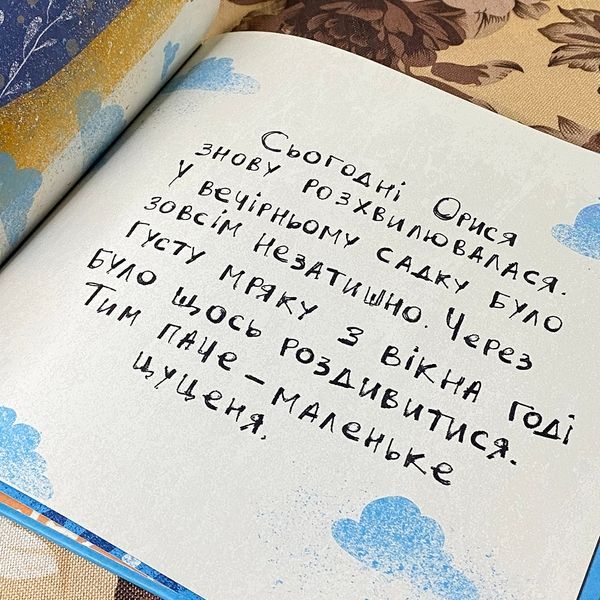 Сьогодні Орися
знову розхвилювалася.
У вечірньому садку було
зовсім незатишно. Через
густу мряку з вікна годі
було щось роздивитися.
Тим паче – маленьке
цуценя.